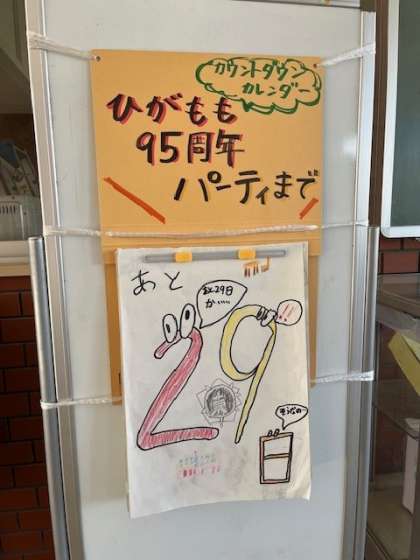 カウントダウン
カレンダー
ひがもも
95周年
パーティまで
あと
あと29日
か……
!!
29
そうなの…